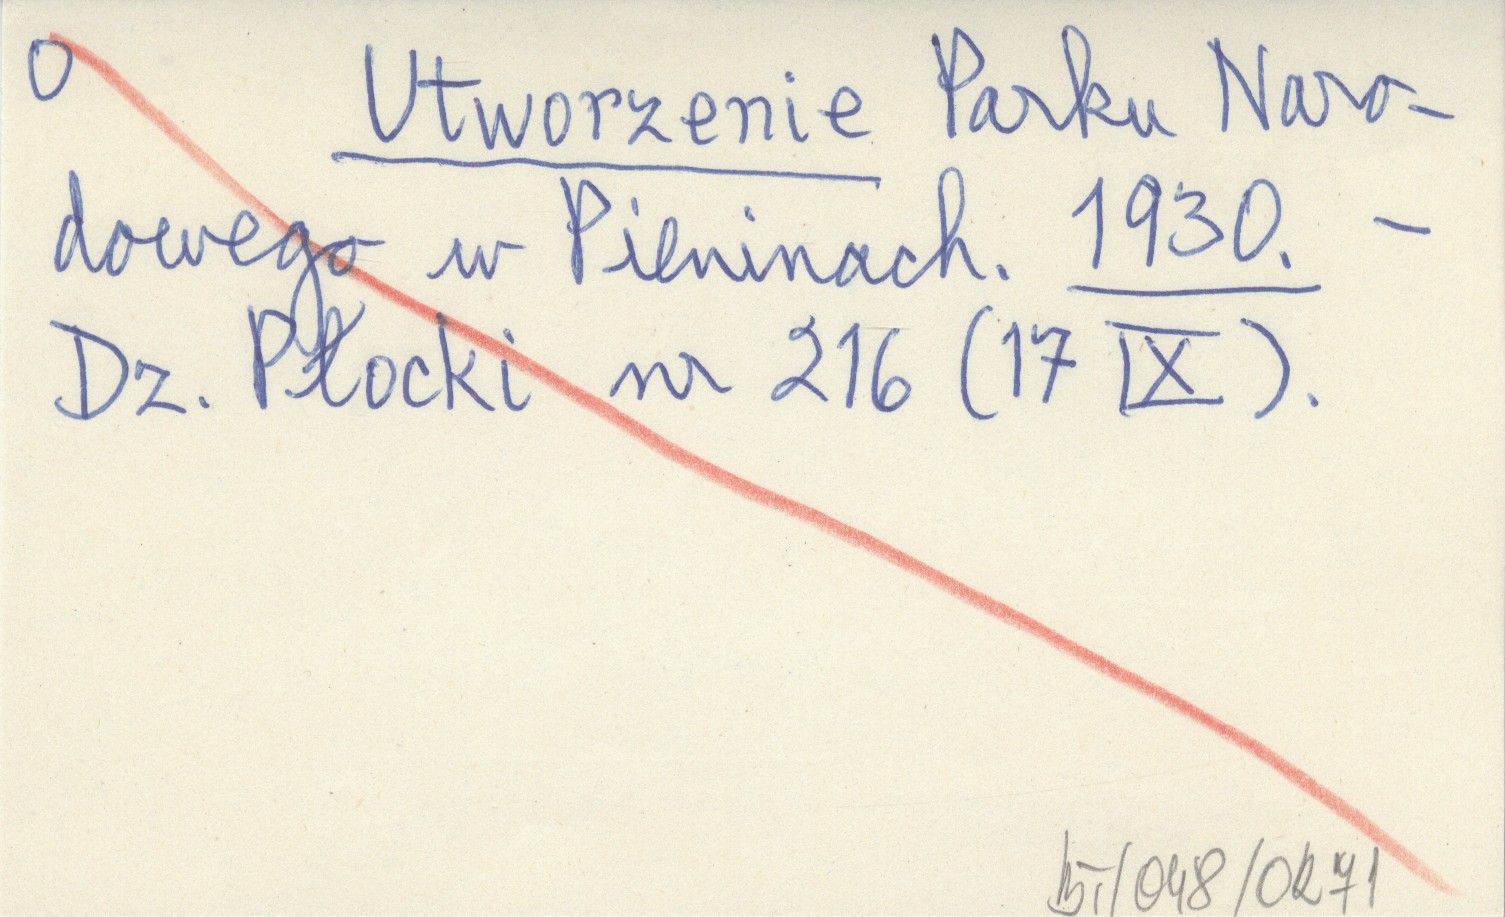 O Utworzenie Parku Naro-
dowego w Pieninach. 1930. -
Dz. Płocki nr 216 (17 IX).
/048/0271